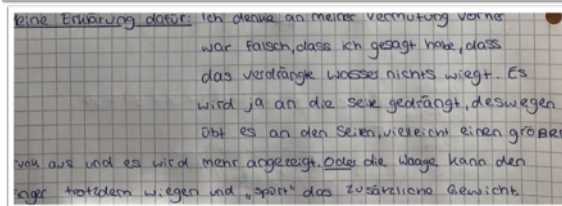 eine Erklärung dafür: Ich denke an meiner Vermutung vorher
war falsch, dass ich gesagt habe, dass
das verdrängte Wasser nichts wiegt. Es
wird ja an die Seite gedrängt, deswegen
übt es an den Seiten, vielleicht einen großer
aus und es wird mehr angezeigt. Oder die Waage kann den
trotzdem wiegen und „spürt" das zusätzliche Gewicht